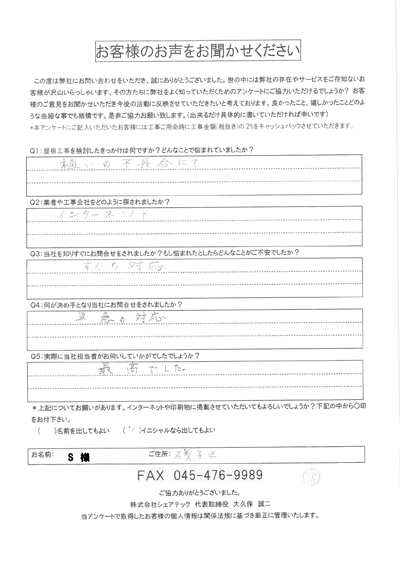 お客様のお声をお聞かせください
この度は弊社にお問い合わせをいただき、誠にありがとうございました。世の中には弊社の存在やサービスをご存知ないお
客様が沢山いらっしゃいます。その方たちに弊社をよく知っていただくためのアンケートにご協力いただけるでしょうか? お客
様のご意見をお聞かせいただき今後の活動に反映させていただきたいと考えております。良かったこと、嬉しかったことどのよ
うな些細な事でも結構です。是非ご協力お願い致します。(出来るだけ具体的に書いていただければ幸いです)
*本アンケートにご記入いただいたお客様には工事ご用命時に工事金額(税抜き)の2%をキャッシュバックさせていただきます。
Q1:屋根工事を検討したきっかけは何ですか?どんなことで悩まれていましたか?
樋いの不具合にて
Q2:業者や工事会社をどのように探されましたか?
インターネット
Q3:当社を知りすぐにお問合せをされましたか?もし悩まれたとしたらどんなことがご不安でしたか?
すぐの対応
Q4:何が決め手となり当社にお問合せをされましたか?
早急の対応
Q5:実際に当社担当者がお伺いしていかがでしたでしょうか?
最高でした。
*上記についてお願いがあります。インターネットや印刷物に掲載させていただいてもよろしいでしょうか?下記の中から〇印
をお付下さい。
( )名前を出してもよい ( )イニシャルなら出してもよい
お名前: S 様 ご住所: 磯子区
FAX 045-476-9989
ご協力ありがとうございました。
株式会社シェアテック 代表取締役 大久保 誠二
当アンケートで取得したお客様の個人情報は関係法規に基づき厳正に管理いたします。